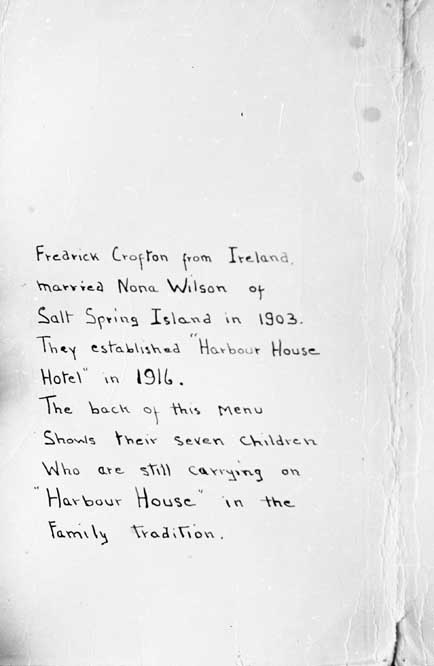 Fredrick Crofton from Ireland,
married Nona Wilson of
Salt Spring Island in 1903.
They established "Harbour House
Hotel" in 1916.
The back of this Menu
Shows their seven children
Who are still carrying on
"Harbour House" in the
Family tradition.